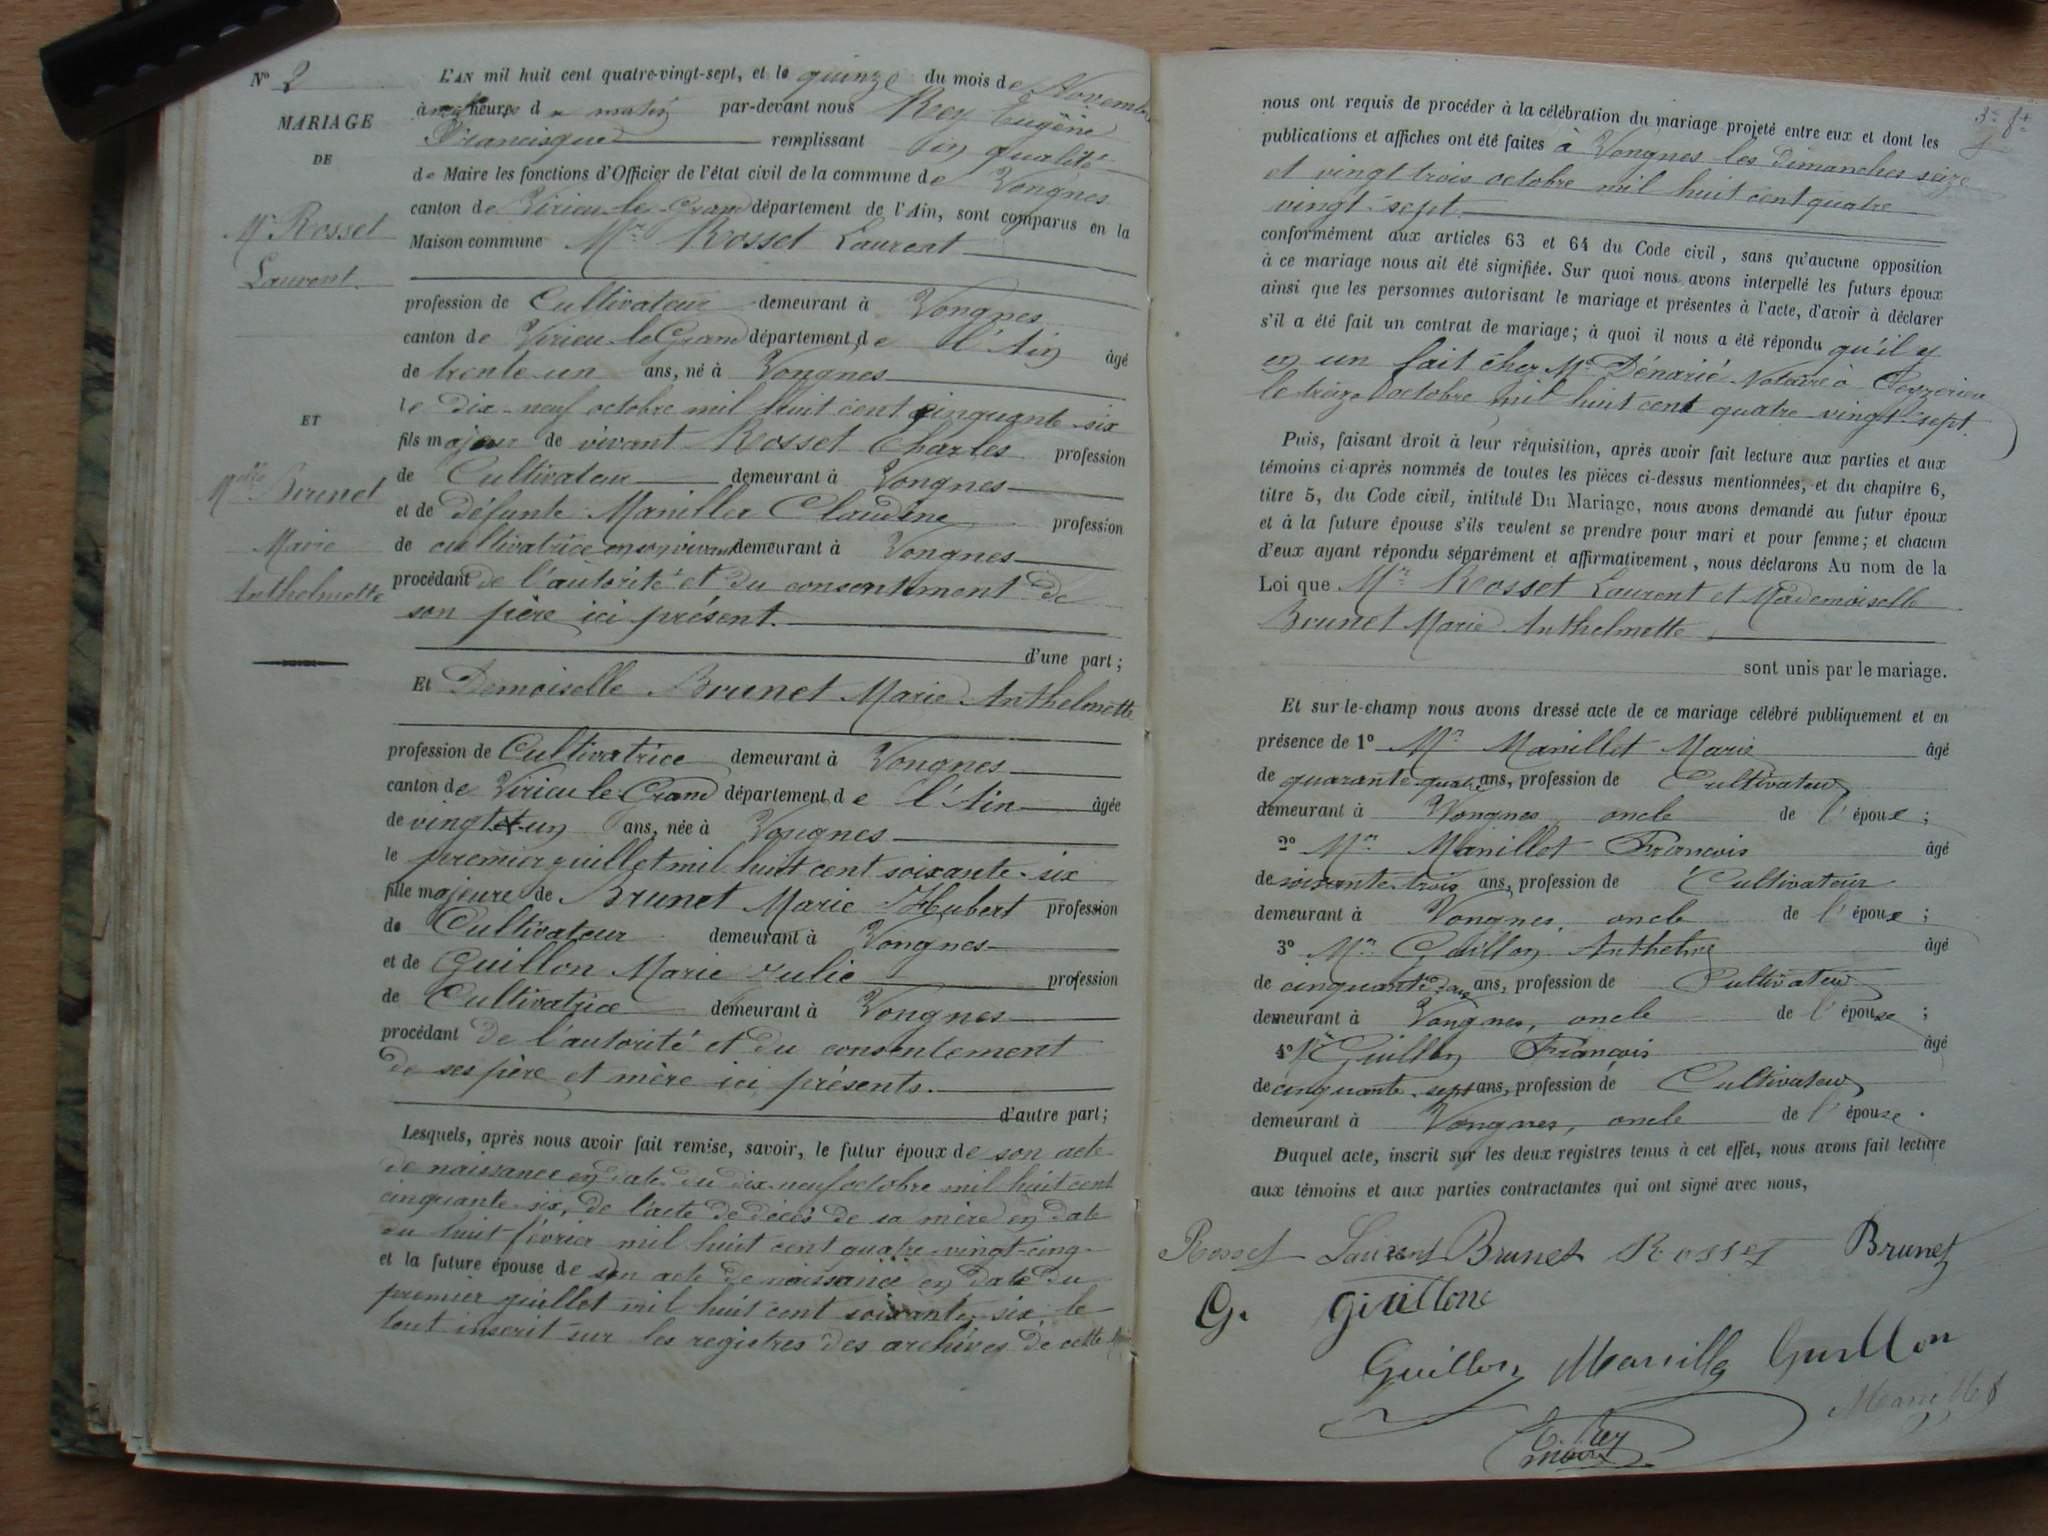 N° 2
MARIAGE
DE
Mr Rosset
Laurent.
ET
Melle Brunet
Marie
Anthelmette
L'AN mil huit cent quatre-vingt-sept, et le quinze du mois de Novembre
à heures du matin par-devant nous Rey Eugène
Francisque remplissant en qualité
de Maire les fonctions d'Officier de l'état civil de la commune de Vongnes
canton de Virieu-le-Grand département de l'Ain, sont comparus en la
Maison commune Mr Rosset Laurent
profession de Cultivateur demeurant à Vongnes
canton de Virieu le Grand département de l'Ain âgé
de trente-un ans, né à Vongnes
le dix-neuf octobre mil huit cent cinquante-six
fils majeur de vivant Rosset Charles profession
de Cultivateur demeurant à Vongnes
et de défunte Manillet Claudine profession
de cultivatrice en son vivant demeurant à Vongnes
procédant de l'autorité et du consentement de
son père ici présent.
d'une part;
Et Demoiselle Brunet Marie Anthelmette
profession de Cultivatrice demeurant à Vongnes
canton de Virieu le Grand département de l'Ain âgée
de vingt et un ans, née à Vongnes
le premier juillet mil huit cent soixante-six
fille majeure de Brunet Marie Hubert profession
de Cultivateur demeurant à Vongnes
et de Guillon Marie Julie profession
de Cultivatrice demeurant à Vongnes
procédant de l'autorité et du consentement
de ses père et mère ici présents.
d'autre part;
Lesquels, après nous avoir fait remise, savoir, le futur époux de son acte
de naissance en date du dix-neuf octobre mil huit cent
cinquante-six, de l'acte de décès de sa mère en date
du huit février mil huit cent quatre-vingt-cinq
et la future épouse de son acte de naissance en date du
premier juillet mil huit cent soixante-six, le
tout inscrit sur les registres des archives de cette
nous ont requis de procéder à la célébration du mariage projeté entre eux et dont les
publications et affiches ont été faites à Vongnes les dimanches seize
et vingt trois octobre mil huit cent quatre
vingt-sept.
conformément aux articles 63 et 64 du Code civil, sans qu'aucune opposition
à ce mariage nous ait été signifiée. Sur quoi nous avons interpellé les futurs époux
ainsi que les personnes autorisant le mariage et présentes à l'acte, d'avoir à déclarer
s'il a été fait un contrat de mariage; à quoi il nous a été répondu qu'il y
en un fait chez Me Dénarié Notaire à Ceyzerieu
le treize octobre mil huit cent quatre vingt-sept.
Puis, faisant droit à leur réquisition, après avoir fait lecture aux parties et aux
témoins ci-après nommés de toutes les pièces ci-dessus mentionnées, et du chapitre 6,
titre 5, du Code civil, intitulé Du Mariage, nous avons demandé au futur époux
et à la future épouse s'ils veulent se prendre pour mari et pour femme; et chacun
d'eux ayant répondu séparément et affirmativement, nous déclarons Au nom de la
Loi que Mr Rosset Laurent et Mademoiselle
Brunet Marie Anthelmette
sont unis par le mariage.
Et sur-le-champ nous avons dressé acte de ce mariage célébré publiquement et en
présence de 1° Mr Manillet Marie âgé
de quarante quatre ans, profession de Cultivateur
demeurant à Vongnes oncle de l'époux;
2° Mr Manillet François âgé
de soixante-trois ans, profession de Cultivateur
demeurant à Vongnes, oncle de l'époux;
3° Mr Guillon Anthelme âgé
de cinquante ans, profession de Cultivateur
demeurant à Vongnes, oncle de l'épouse;
4° Mr Guillon François âgé
de cinquante-sept ans, profession de Cultivateur
demeurant à Vongnes, oncle de l'épouse.
Duquel acte, inscrit sur les deux registres tenus à cet effet, nous avons fait lecture
aux témoins et aux parties contractantes qui ont signé avec nous,
Rosset Laurent Brunet Rosset Brunet
G. Guillone
Guillon Manillet Guillon
Manillet
E. Rey
maire